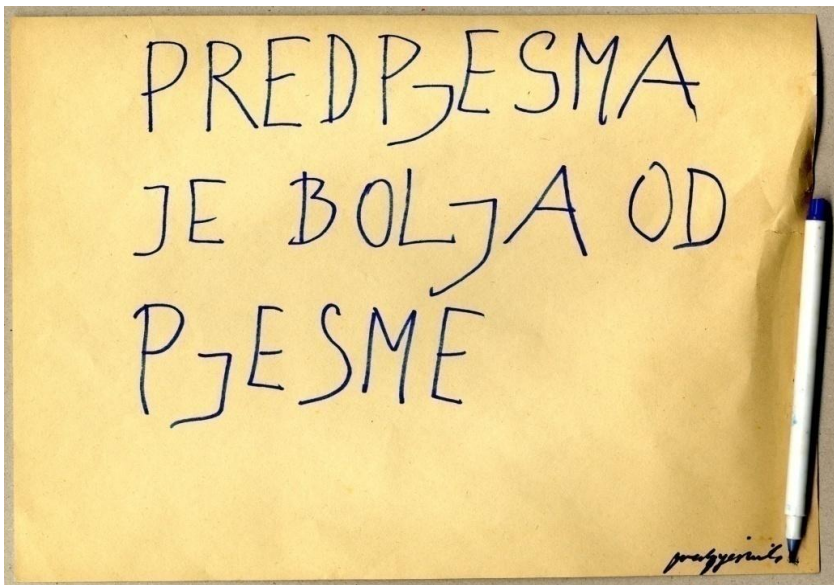 PREDPJESMA
JE BOLJA OD
PJESME